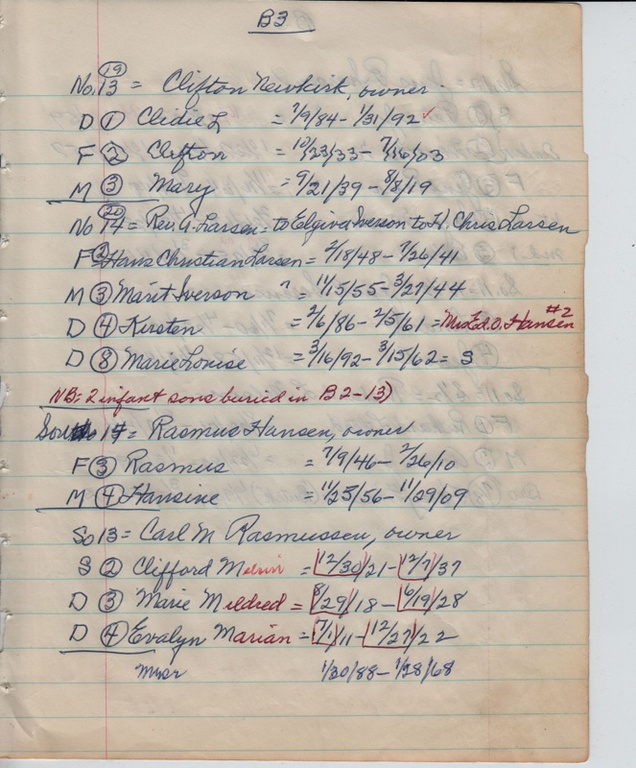 B3
19
No. 13 = Clifton Newkirk, owner
D ① Clidie L = 7/9/84 - 1/31/92 ✓
F ② Clifton = 10/23/33 - 7/16/03
M ③ Mary = 9/21/39 - 8/8/19
20
No 14 = Rev A. Larsen = to Elgiva Iverson to H. Chris Larsen
F ② Hans Christian Larsen = 2/18/48 - 7/26/41
M ③ Maret Iverson " 11/15/55 - 3/27/44
D ④ Kirsten = 2/6/86 - 2/5/61 = Mrs Ed. O. Hansen #2
D ⑧ Marie Louise = 3/16/92 - 3/15/62 = S
NB = 2 infant sons buried in B2-13)
14 = Rasmus Hansen, owner
F ③ Rasmus = 7/9/46 - 2/26/10
M ④ Hansine = 11/25/56 - 11/29/09
So 13 = Carl M Rasmussen, owner
S ② Clifford Melvin = 12/30/21 - 12/7/37
D ③ Marie Mildred = 8/29/18 - 6/19/28
D ④ Evalyn Marian = 7/1/11 - 12/27/22
1/30/88 - 1/28/68